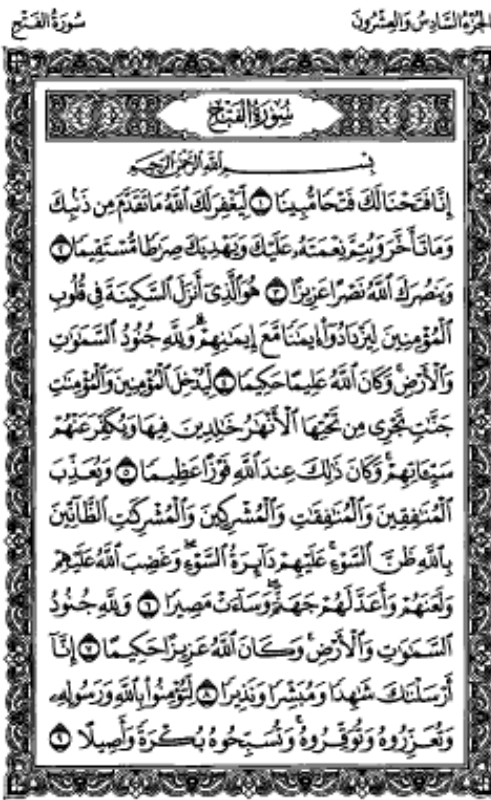 الجزء السادس والعشرون
سورة الفتح
سورة الفتح
بِسْمِ ٱللَّهِ ٱلرَّحْمَٰنِ ٱلرَّحِيمِ
إِنَّا فَتَحْنَا لَكَ فَتْحًا مُّبِينًا ١ لِّيَغْفِرَ لَكَ ٱللَّهُ مَا تَقَدَّمَ مِن ذَنۢبِكَ
وَمَا تَأَخَّرَ وَيُتِمَّ نِعْمَتَهُۥ عَلَيْكَ وَيَهْدِيَكَ صِرَٰطًا مُّسْتَقِيمًا ٢
وَيَنصُرَكَ ٱللَّهُ نَصْرًا عَزِيزًا ٣ هُوَ ٱلَّذِىٓ أَنزَلَ ٱلسَّكِينَةَ فِى قُلُوبِ
ٱلْمُؤْمِنِينَ لِيَزْدَادُوٓا۟ إِيمَٰنًا مَّعَ إِيمَٰنِهِمْ ۗ وَلِلَّهِ جُنُودُ ٱلسَّمَٰوَٰتِ
وَٱلْأَرْضِ ۚ وَكَانَ ٱللَّهُ عَلِيمًا حَكِيمًا ٤ لِّيُدْخِلَ ٱلْمُؤْمِنِينَ وَٱلْمُؤْمِنَٰتِ
جَنَّٰتٍ تَجْرِى مِن تَحْتِهَا ٱلْأَنْهَٰرُ خَٰلِدِينَ فِيهَا وَيُكَفِّرَ عَنْهُمْ
سَيِّـَٔاتِهِمْ ۚ وَكَانَ ذَٰلِكَ عِندَ ٱللَّهِ فَوْزًا عَظِيمًا ٥ وَيُعَذِّبَ
ٱلْمُنَٰفِقِينَ وَٱلْمُنَٰفِقَٰتِ وَٱلْمُشْرِكِينَ وَٱلْمُشْرِكَٰتِ ٱلظَّآنِّينَ
بِٱللَّهِ ظَنَّ ٱلسَّوْءِ ۚ عَلَيْهِمْ دَآئِرَةُ ٱلسَّوْءِ ۖ وَغَضِبَ ٱللَّهُ عَلَيْهِمْ
وَلَعَنَهُمْ وَأَعَدَّ لَهُمْ جَهَنَّمَ ۖ وَسَآءَتْ مَصِيرًا ٦ وَلِلَّهِ جُنُودُ
ٱلسَّمَٰوَٰتِ وَٱلْأَرْضِ ۚ وَكَانَ ٱللَّهُ عَزِيزًا حَكِيمًا ٧ إِنَّآ
أَرْسَلْنَٰكَ شَٰهِدًا وَمُبَشِّرًا وَنَذِيرًا ٨ لِّتُؤْمِنُوا۟ بِٱللَّهِ وَرَسُولِهِۦ
وَتُعَزِّرُوهُ وَتُوَقِّرُوهُ ۚ وَتُسَبِّحُوهُ بُكْرَةً وَأَصِيلًا ٩